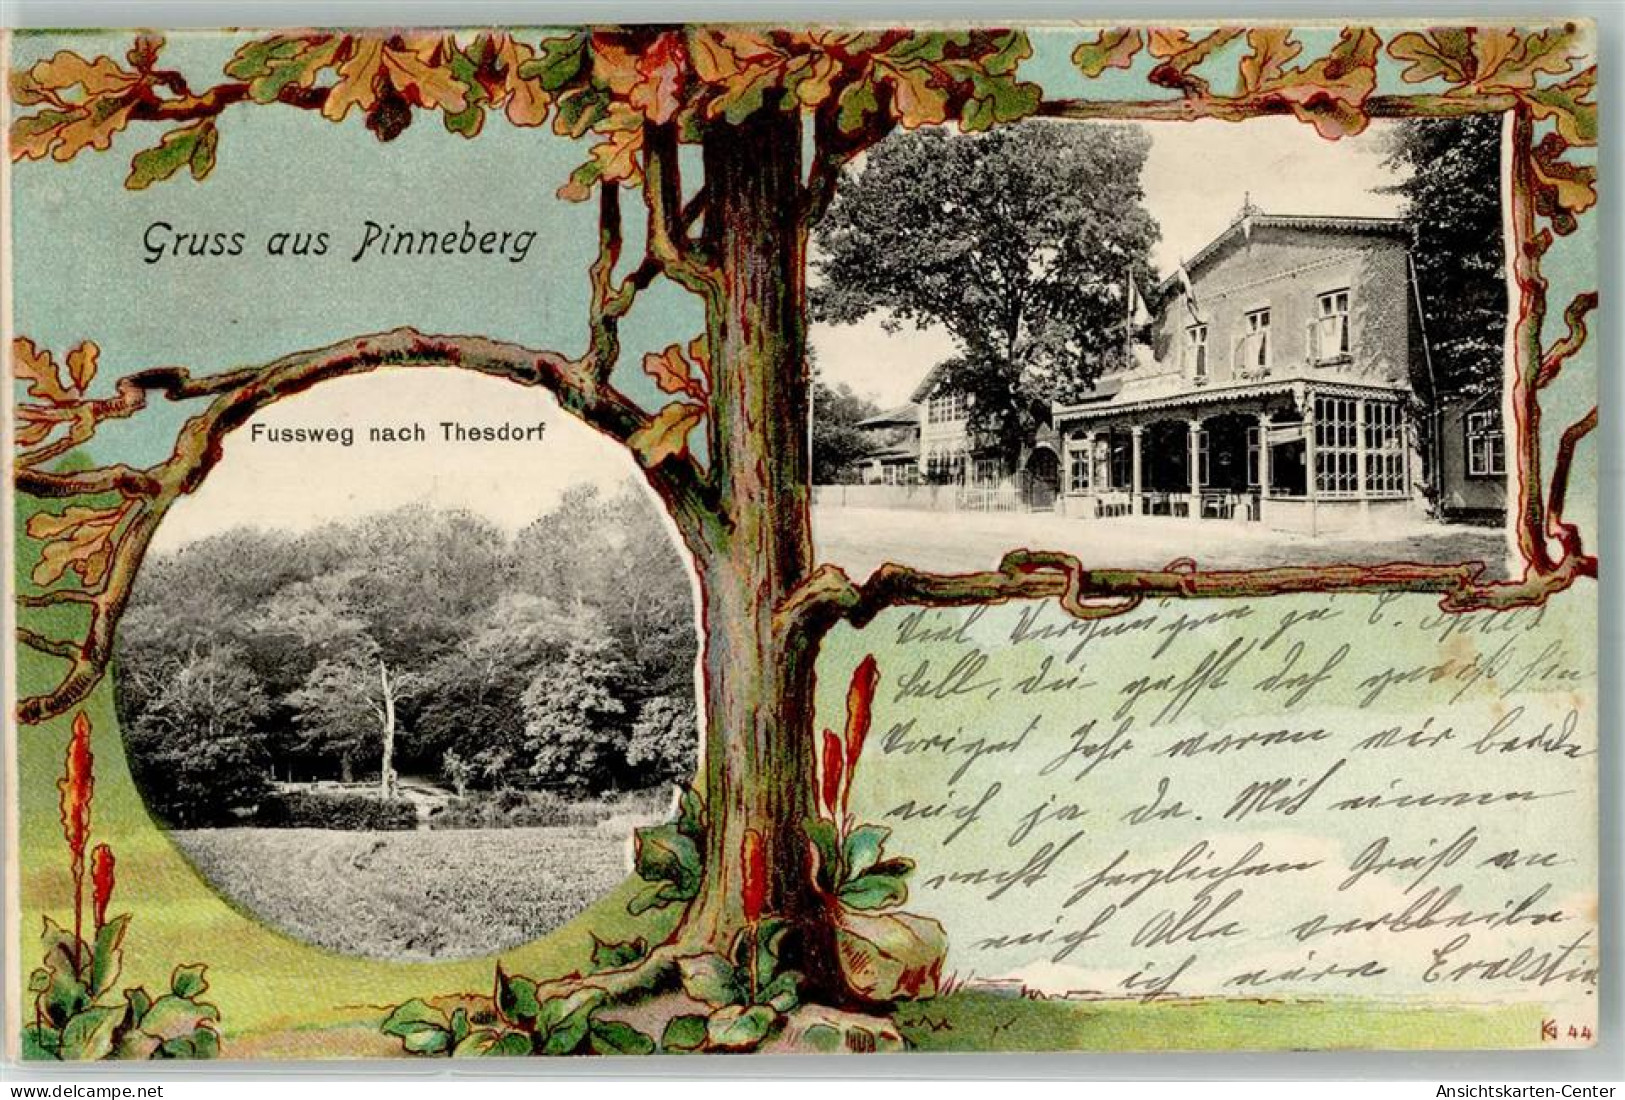 Gruss aus Pinneberg
Fussweg nach Thesdorf
Viel Vergnügen zu
ball, du gehst doch gewiß hin
Voriges Jahr waren wir beide
auch ja da. Mit einem
recht herzlichen Gruß an
euch Alle verbleibe
ich eure
44
Ansichtskarten-Center